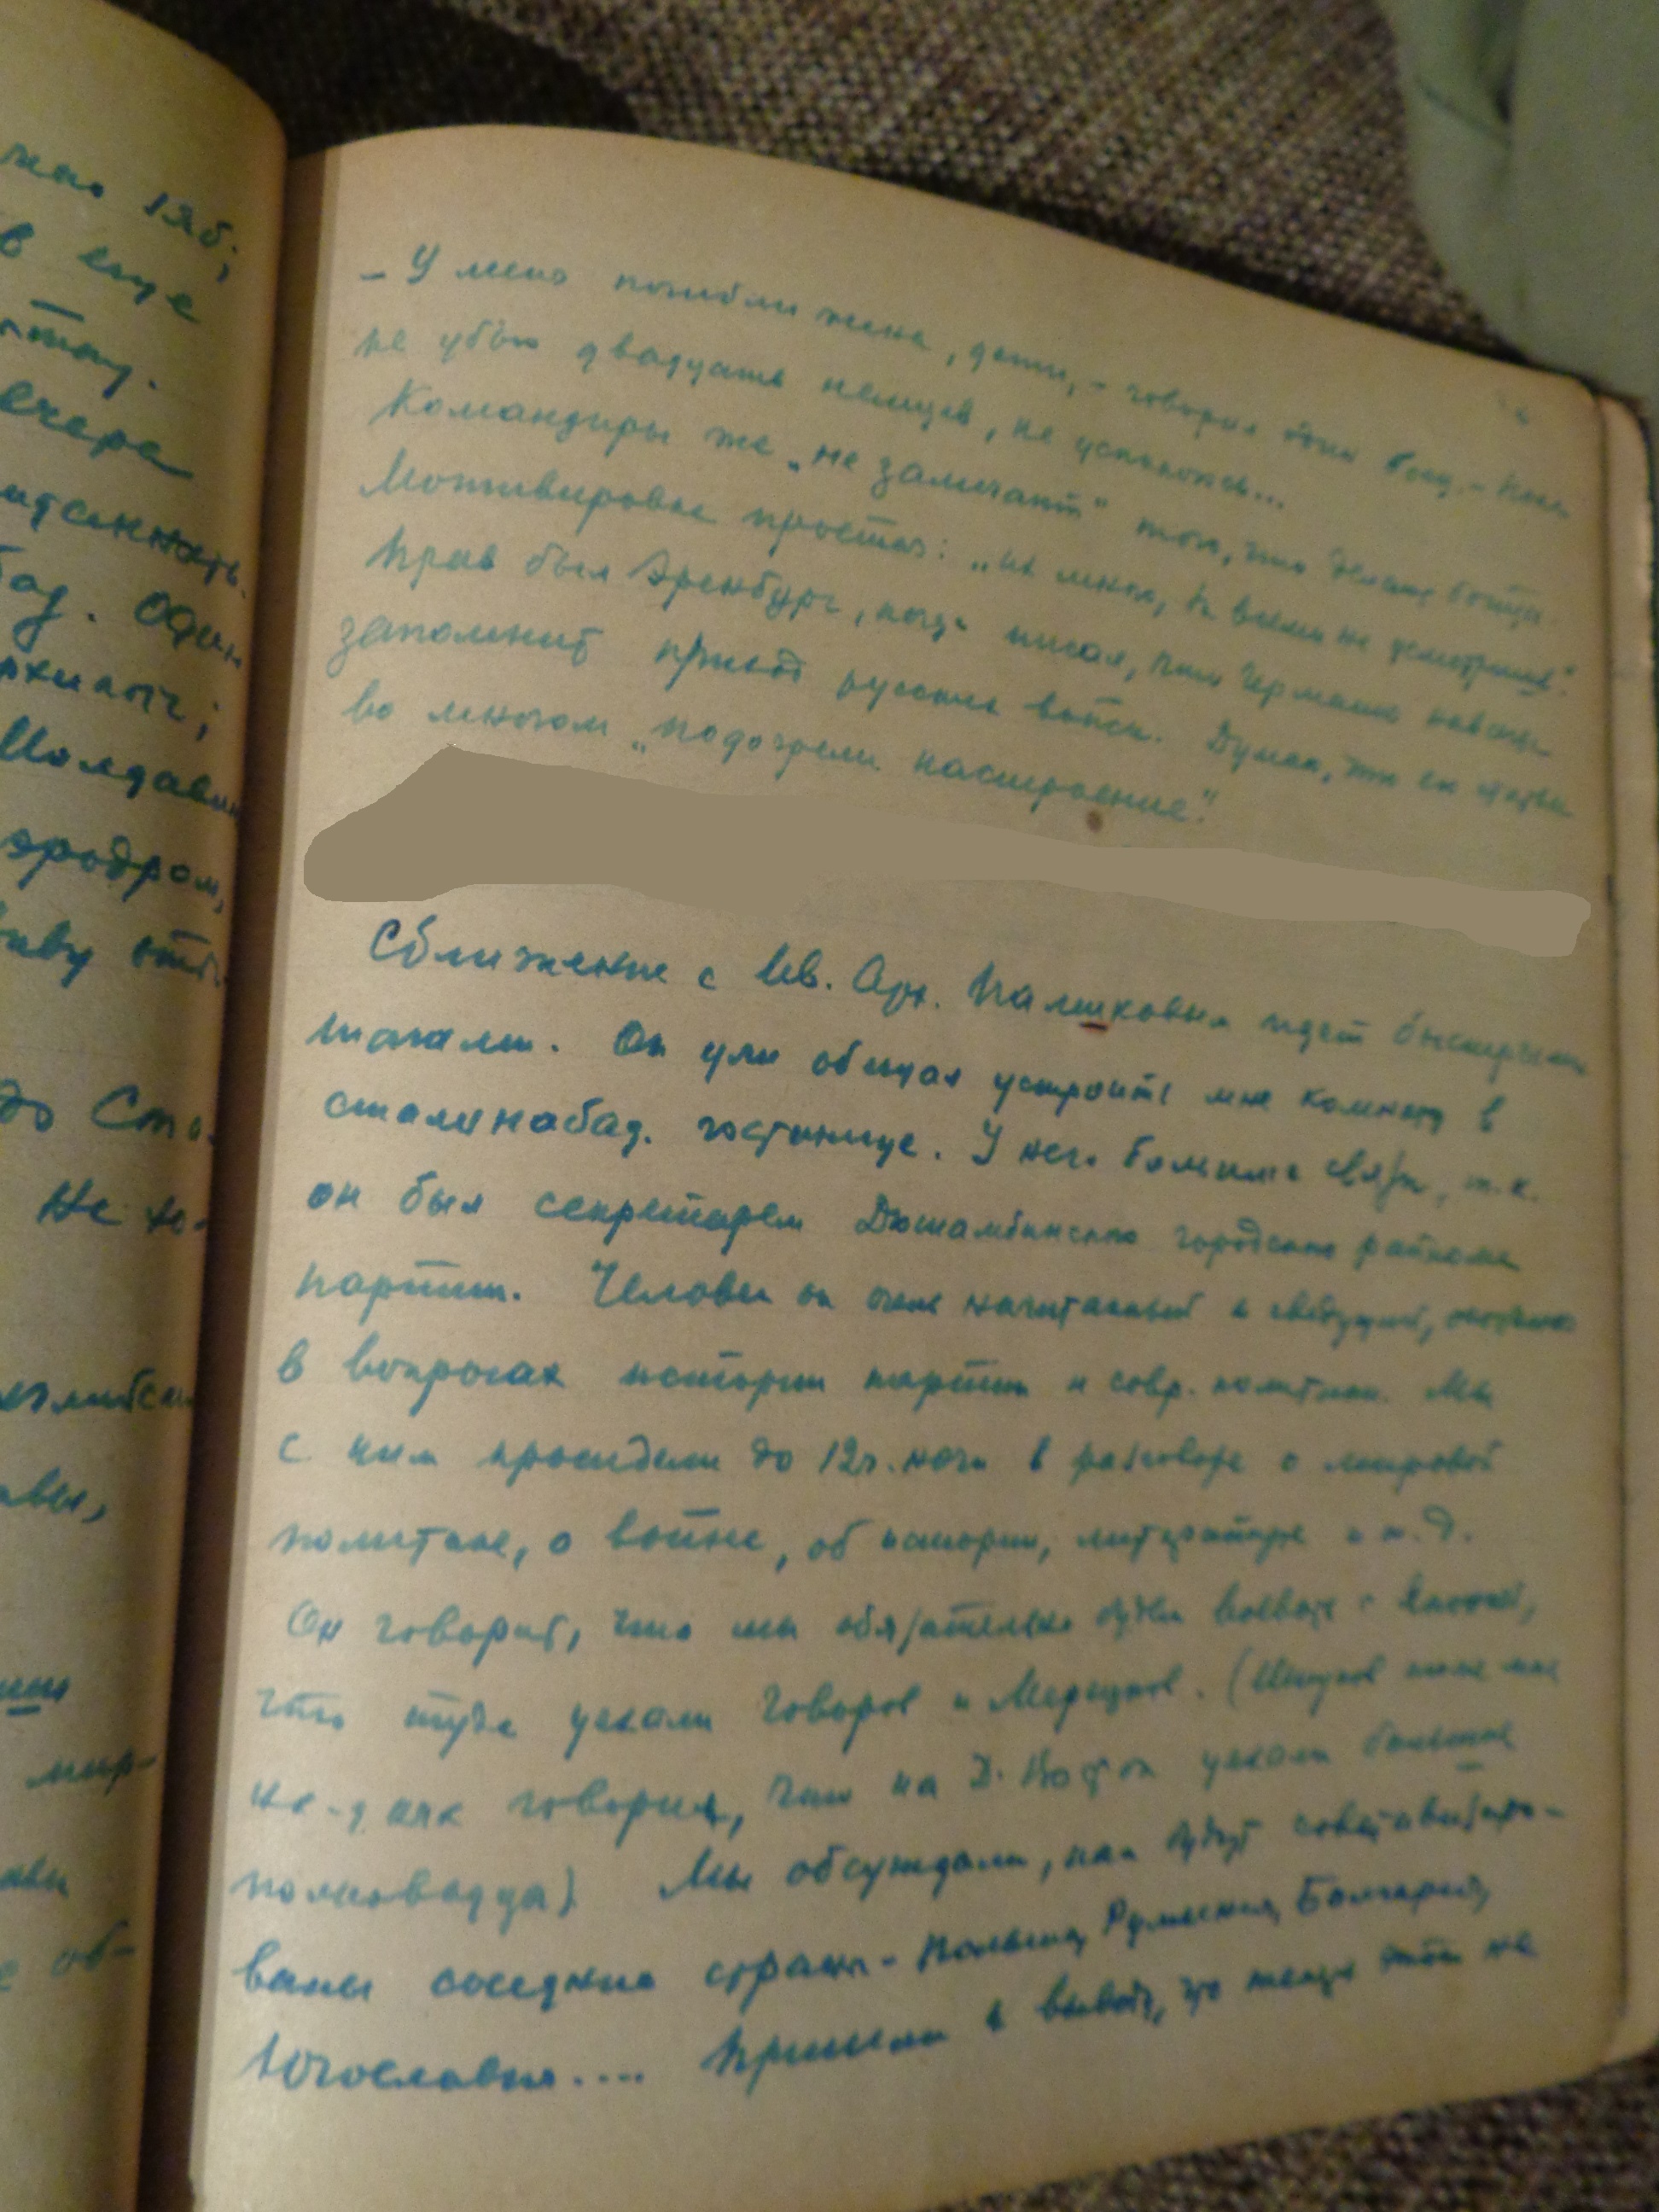 мно 1яб;
в еще
ечере
итанность.
бад. Один
Молдавии
эродром,
до Ста-
Не хо-
мир-
е об-
– У меня погибли жена, дети, – говорил один боец. – Пока
не убью двадцать немцев, не успокоюсь...
Командиры же „не замечают" того, что делают бойцы.
Мотивировка простая: „их много, за всеми не усмотришь".
Прав был Эренбург, когда писал, что Германия навсегда
запомнит приход русских войск. Думаю, что его статьи
во многом „подогрели настроение".
Сближение с Ив. Арт. Палшковым идет быстрыми
шагами. Он уже обещал устроить мне комнату в
сталинабад. гостинице. У него большие связи, т.к.
он был секретарем Дюшамбинского городского райкома
партии. Человек он очень начитанный и сведущий, особенно
в вопросах истории партии и совр. политики. Мы
с ним просидели до 12ч. ночи в разговоре о мировой
политике, о войне, об истории, литературе и т.д.
Он говорит, что мы обязательно будем воевать с Японией,
что туда уехали Говоров и Мерецков. (тоже мне
как говорил, что на Д. Восток уехали большие
полководцы) Мы обсуждали, как будут советизиро-
ваны соседние страны – Польша, Румыния, Болгария,
Югославия.... Пришли к выводу, что темпы этой не